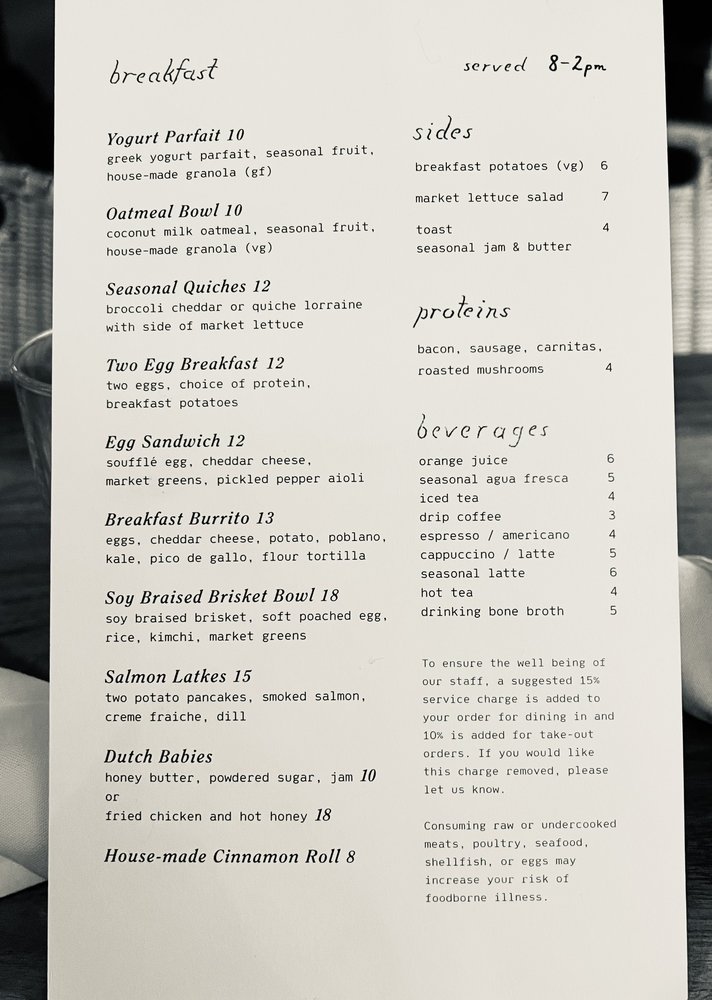 breakfast
served 8-2pm
Yogurt Parfait 10
greek yogurt parfait, seasonal fruit,
house-made granola (gf)
Oatmeal Bowl 10
coconut milk oatmeal, seasonal fruit,
house-made granola (vg)
Seasonal Quiches 12
broccoli cheddar or quiche lorraine
with side of market lettuce
Two Egg Breakfast 12
two eggs, choice of protein,
breakfast potatoes
Egg Sandwich 12
soufflé egg, cheddar cheese,
market greens, pickled pepper aioli
Breakfast Burrito 13
eggs, cheddar cheese, potato, poblano,
kale, pico de gallo, flour tortilla
Soy Braised Brisket Bowl 18
soy braised brisket, soft poached egg,
rice, kimchi, market greens
Salmon Latkes 15
two potato pancakes, smoked salmon,
creme fraiche, dill
Dutch Babies
honey butter, powdered sugar, jam 10
or
fried chicken and hot honey 18
House-made Cinnamon Roll 8
sides
breakfast potatoes (vg) 6
market lettuce salad 7
toast 4
seasonal jam & butter
proteins
bacon, sausage, carnitas,
roasted mushrooms 4
beverages
orange juice 6
seasonal agua fresca 5
iced tea 4
drip coffee 3
espresso / americano 4
cappuccino / latte 5
seasonal latte 6
hot tea 4
drinking bone broth 5
To ensure the well being of
our staff, a suggested 15%
service charge is added to
your order for dining in and
10% is added for take-out
orders. If you would like
this charge removed, please
let us know.
Consuming raw or undercooked
meats, poultry, seafood,
shellfish, or eggs may
increase your risk of
foodborne illness.